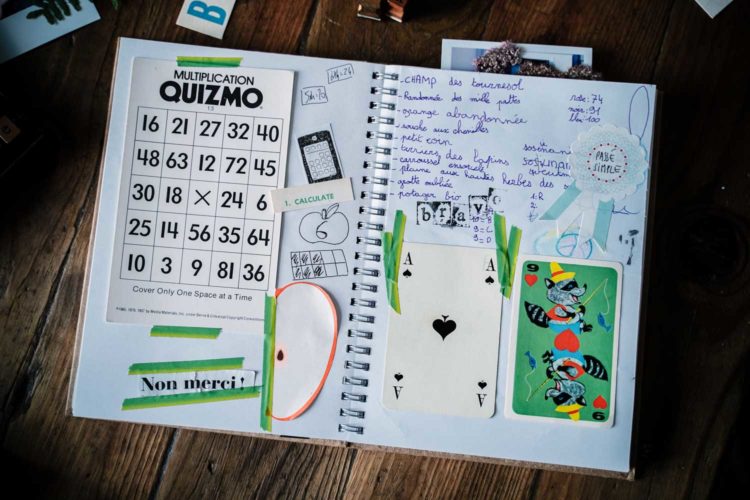 B
MULTIPLICATION
QUIZMO
13
16 21 27 32 40
48 63 12 72 45
30 18 × 24 6
25 14 56 35 64
10 3 9 81 36
Cover Only One Space at a Time
Non merci !
1. CALCULATE
- CHAMP des tournesol
- Randonnée des mille pattes
- orange abandonnée
- souche aux chenilles
- petit corn
- terriers des lapins
- carrousel ensorcelé
- plaine aux hautes herbes des
- grotte oubliée
- potager bio
rose: 74
noir: 91
bleu: 100
PASSE
SIMPLE
1: R
2:
10 = B
9 = C
9 = D
bravo
A A
A A
9
6